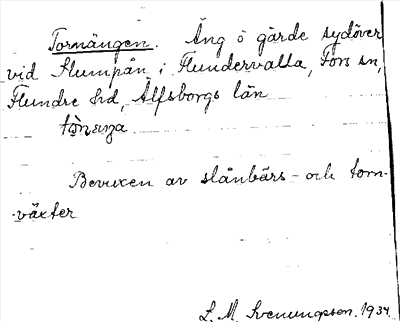 Tornängen. Äng å gärde sydöver
vid Slumpån i Flundervalla, Fors sn,
Flundre hd, Älfsborgs län
Bevuxen av slånbärs- och torn-
växter
L. M. Svenungsson. 1934